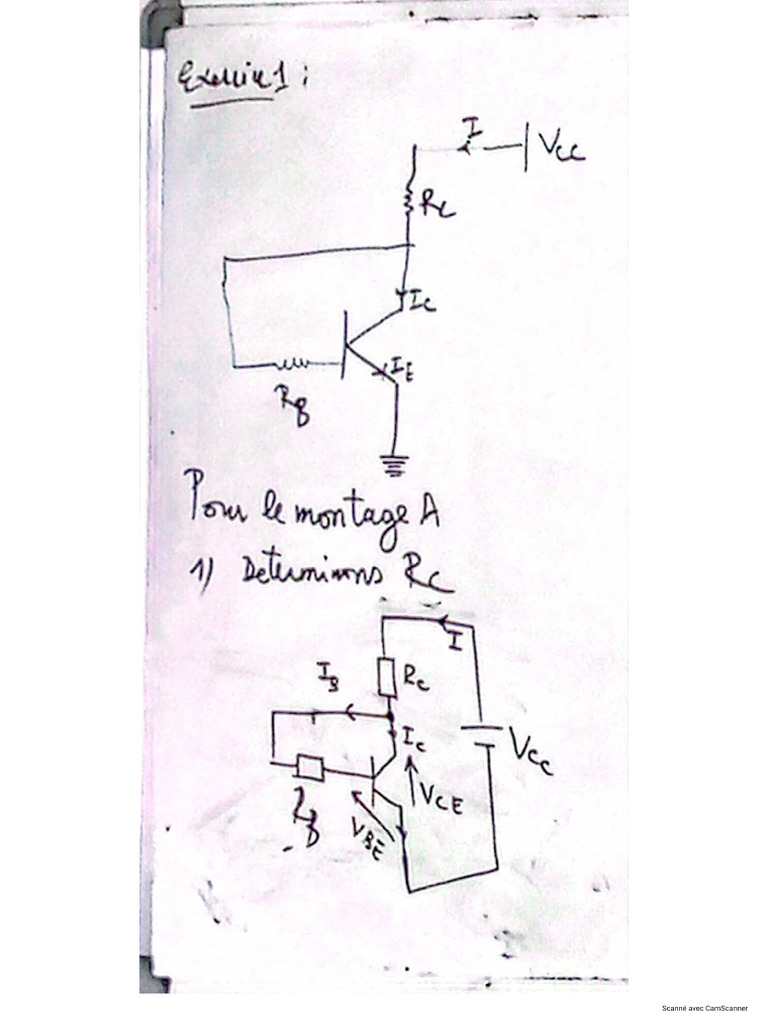 Exercice 1 :
I
VCC
RC
IC
IE
RB
Pour le montage A
1) Determinons RC
I
IB
RC
IC
VCC
VCE
RB
VBE
Scanné avec CamScanner